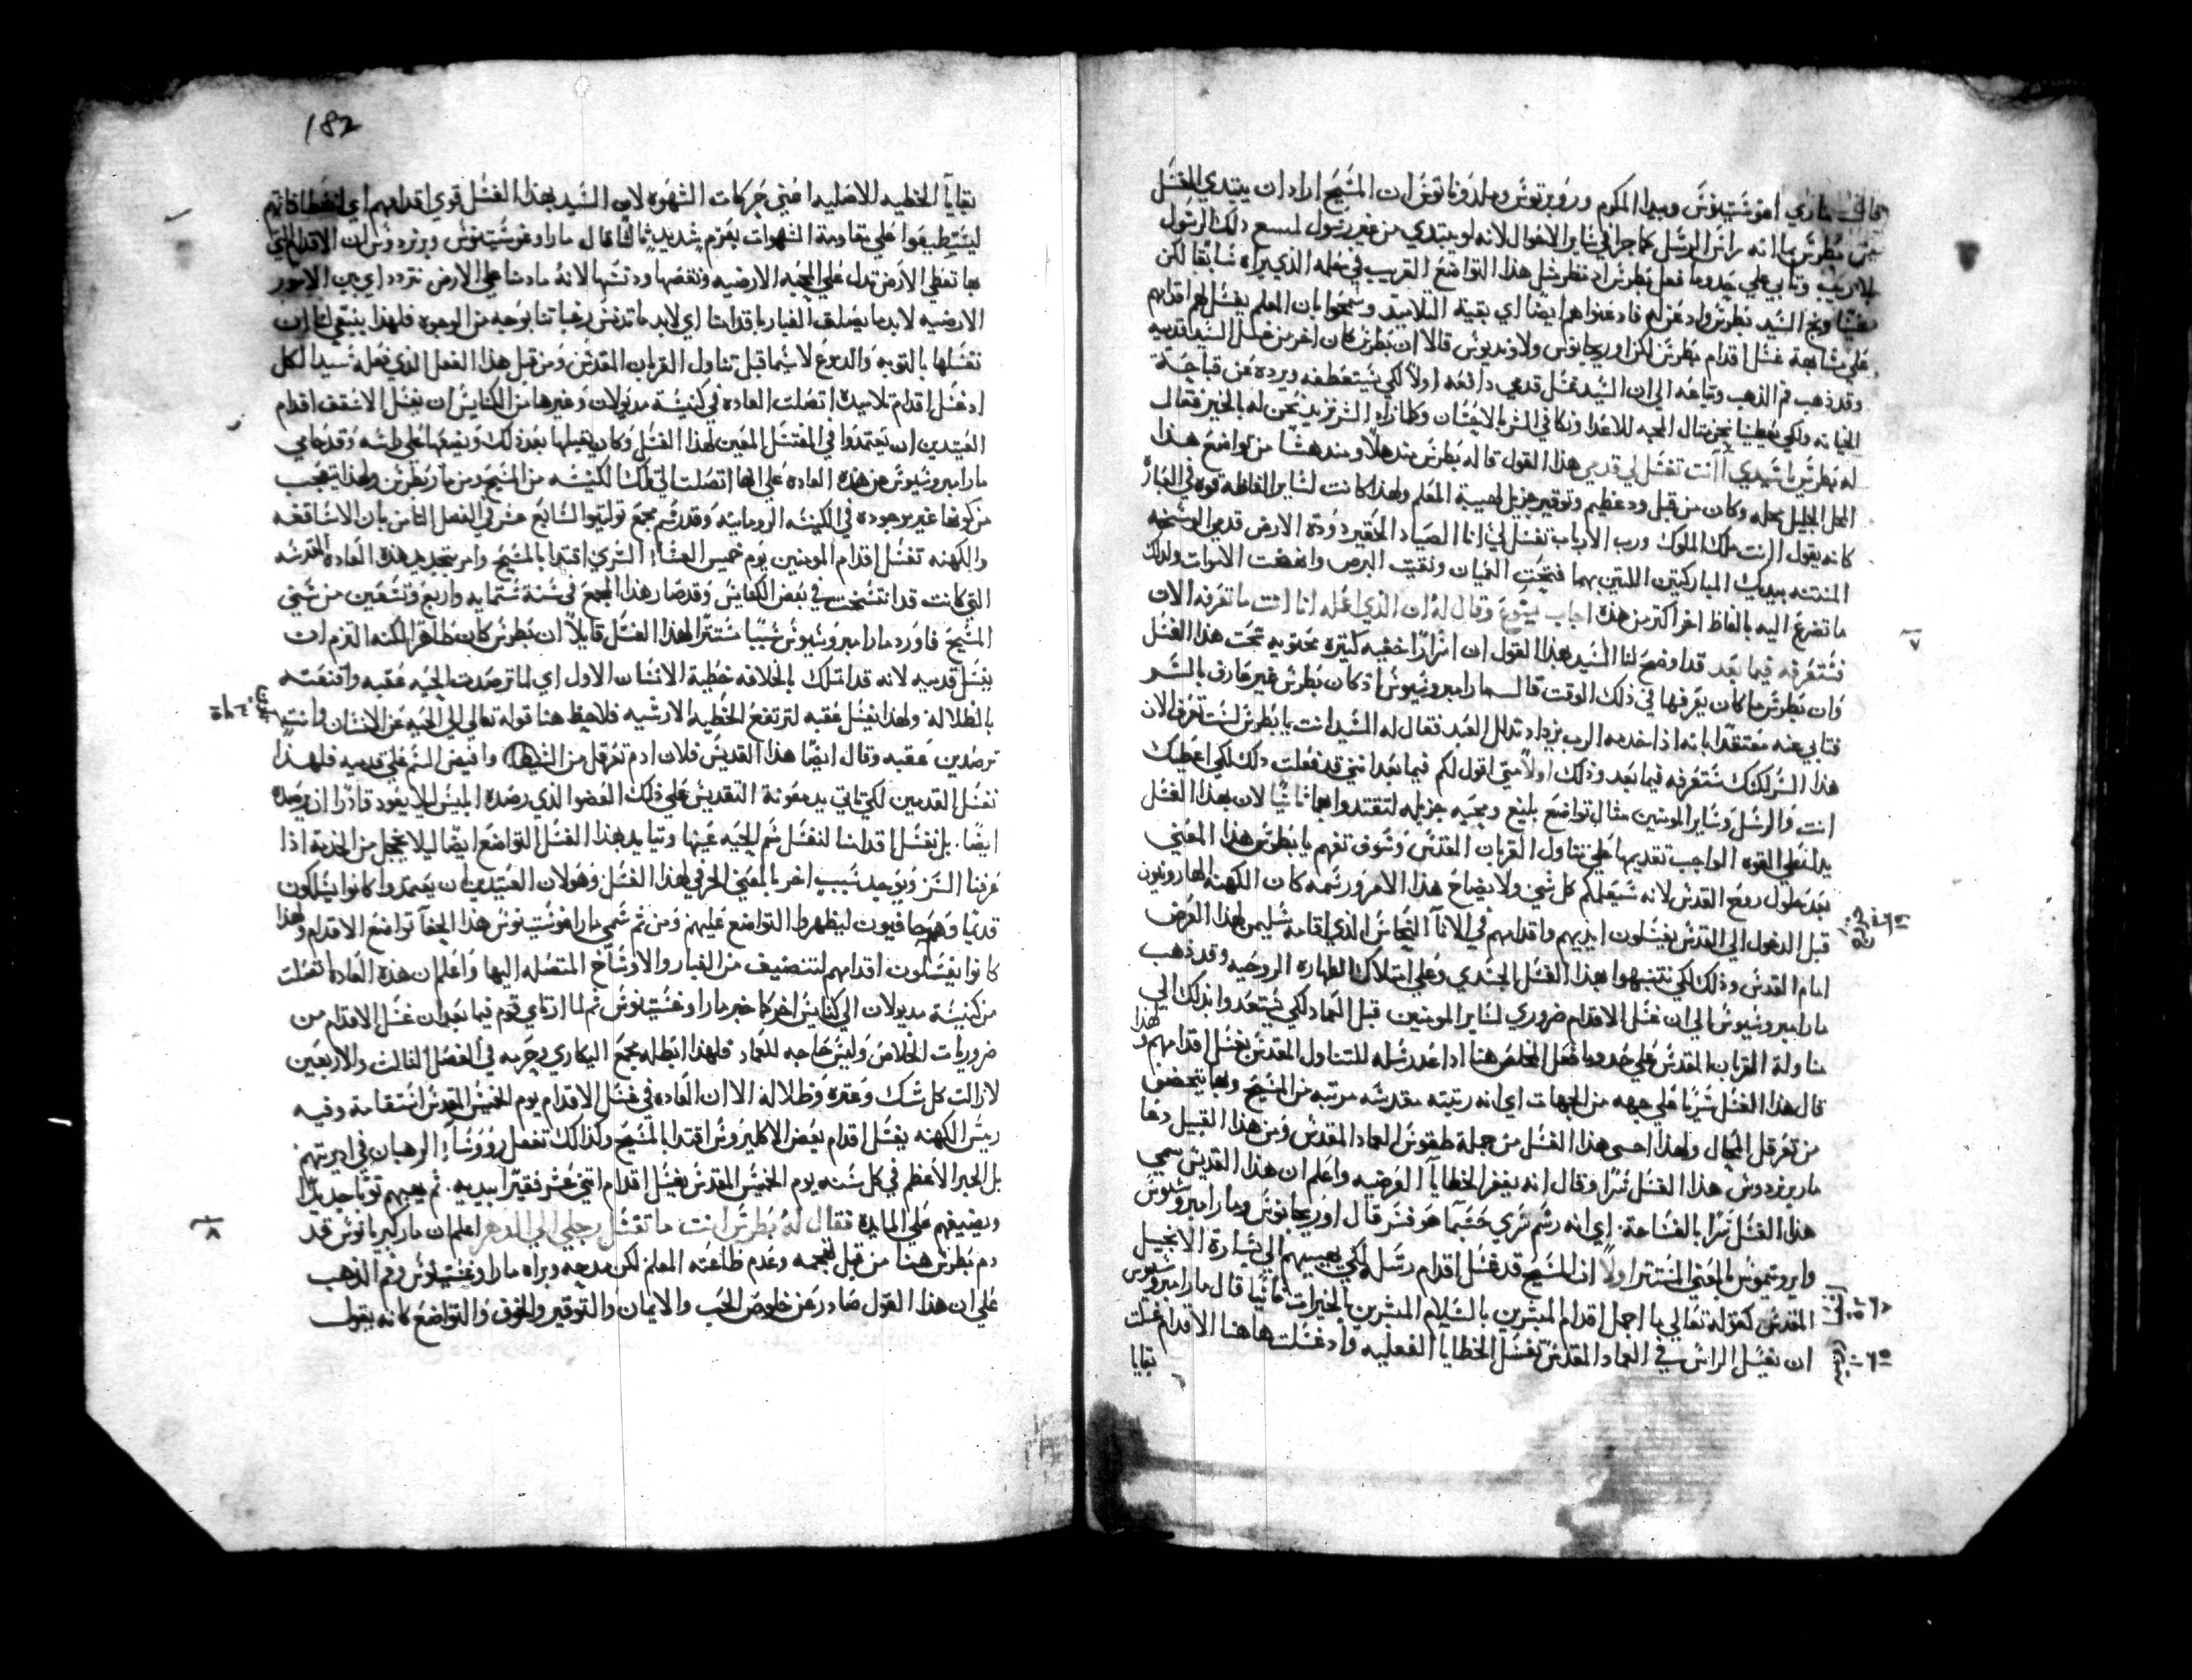 قالت ماري اغوستينوس وبيدا المكرم وروبرتوس ومالدوناتوس ان المسيح اراد ان يبتدي الغسل
من بطرس بما انه راس الرسل كما جرا في ساير الاحوال لانه لو يبتدي من غير رسول لمسع ذلك الرسول
بلا ريب وتابي علي حدوما فعل بطرس اذ نظر مثل هذا التواضع الغريب في معلمه الذي يراه سابقا لكن
بطرس واذ عن له فادعنوا هم ايضا اي بقية التلاميذ وسمحوا بان المعلم يغسل لهم اقدامهم
علي مشابهة غسل اقدام بطرس لكن اوريجانوس ولاونديوس قالا ان بطرس كان اخر من غسل السيد قدميه
وقد ذهب فم الذهب وتباعه الي ان السيد غسل قدمي دافعه اولا لكي يستعطفه ويرده عن قباحة
الخيانه ولكي يعطينا نحن مثال المحبه للاعدا ونكافي الشر بالاحسان وكلما زاد الشر نزيد نحن له بالخير فقال
له بطرس يا سيدي اانت تغسل لي قدمي هذا القول قاله بطرس مندهلا ومندهشا من تواضع هذا
المعلم الجليل محله وكان من قبل ود عظيم وتوقير جزيل لهيبة المعلم ولهذا كانت لساير الفاظه قوه في الغاية
كانه يقول اانت ملك الملوك ورب الارباب تغسل لي انا الصياد الحقير دودة الارض قدمي الوسخه
المنتنه بيديك المباركتين اللتين بهما فتحت العميان ونقيت البرص وانهضت الاموات ولذلك
ما تضرع اليه بالفاظ اخر اكتر من هذه اجاب يسوع وقال له ان الذي اعمله انا انت ما تعرفه الان
فستعرفه فيما بعد قد اوضح لنا السيد بهذا القول ان اسرارا خفيه كثيره محتويه تحت هذا الغسل
وان بطرس ما كان يعرفها في ذلك الوقت قالـ مار امبروسيوس اذ كان بطرس غير عارف بالسر
فتابي عنه معتقدا بانه اذا خدمه الرب يزداد تدلل العبد فقال له السيد انت يا بطرس لست تعرف الان
هذا السر لكنك ستعرفه فيما بعد وذلك اولا متي اقول لكم فيما بعد انني قد فعلت ذلك لكي اعطيك
انت والرسل وساير المومنين مثال تواضع بليغ ومحبه جزيله لتقتدوا بهما ثانيا لان بهذا الغسل
يدل على القوه الواجب تقديمها علي تناول القربان المقدس وسوف تفهم يا بطرس هذا المعني
بعد حلول روح القدس لانه سيعلمكم كل شي ولايضاح هذا الامر ورسمه كان الكهنه الهارونيون
قبل الدخول الي القدس يغسلون ايديهم واقدامهم في الانا النحاس الذي اقامه سليمن لهذا الغرض
امام القدس وذلك لكي تنتبهوا بهذا الغسل الجسدي وعلي امتلاك الطهاره الروحيه وقد ذهب
مار امبروسيوس الي ان غسل الاقدام ضروري لساير المومنين قبل العماد لكي يستعدوا بذلك الي
مناولة القربان المقدس علي حدوما فعل المخلص هنا اذ اعد رسله للتناول المقدس بغسل اقدامهم ولهذا
قال هذا الغسل سريا علي جهه من الجهات اي انه رتيته مقدسه مرتبه من المسيح وبها يتحصن
من تعرقل المحال ولهذا احسى هذا الغسل من جملة طقوس العماد المقدس ومن هذا القبيل دعا
مار برنردوس هذا الغسل سرا وقال انه يغفر الخطايا العرضيه واعلم ان هذا القديس سمي
هذا الغسل سرا بالفساحة اي انه رسم سري حسبما هو فسر قال اوريجانوس ومار امبروسيوس
وايرونيموس بالمعني المستتر اولا ان المسيح قد غسل اقدام رسله لكي يهييهم الي بشارة الانجيل
المقدس كقوله تعالي ما اجمل اقدام المبشرين بالسلام المبشرين بالخيرات ثانيا قال مار امبروسيوس
ان نغسل الراس في العماد المقدس تغسل الخطايا الفعليه واذ غسلت هاهنا الاقدام غسلت
بقايا
182
بقايا الخطيه الاصليه اعني حركات الشهوه لان السيد بهذا الغسل قوي اقدامهم اي
ليستطيعوا علي مقاومة الشهوات بعزم شديد ثالثا قال مار اوغوستينوس وبرنردوس ان الاقدام التي
بها تعطي الارض تدل علي المحبه الارضيه ونقصها ودنسها لانه مادمنا علي الارض نتردد اي بين الامور
الارضيه لابد ما يصلق الغبار باقدامنا اي لابد ما تدنس رغباتنا بوجه من الوجوه فلهذا ينبغي لنا ان
نغسلها بالتوبه والدموع لاسيما قبل تناول القربان المقدس ومن قبل هذا الفعل الذي فعله سيد الكل
اد غسل اقدام تلاميده اتصلت العاده في كنيسة مديولان وغيرها من الكنايس ان يغسل الاسقف اقدام
العتيدين ان يعتمدوا في المغتسل المعين لهذا الغسل وكان يقبلها بعد ذلك ويضعها علي راسه وقد حامي
مار امبروسيوس عن هذه العاده علي انها اتصلت الي تلك الكنيسه من المسيح ومن مار بطرس ولهذا يتعجب
من كونها غير موجوده في الكنيسه الرومانيه وقد رسم مجمع توليتو السابع عشر في الفصل الثامن بان الاساقفه
والكهنه تغسل اقدام المومنين يوم خميس العشا السري اقتدا بالمسيح وامر بتجديد هذه العاده المقدسه
التي كانت قد انتسخت في بعض الكنايس وقد صار هذا المجمع في سنة ستمايه واربع وتسعين من سني
المسيح فاورد مار امبروسيوس سببا مستترا لهذا الغسل قايلا ان بطرس كان طاهرا لكنه التزم ان
يغسل قدميه لانه قد امتلك بالخلافه خطية الانسان الاول اي لما ترصدت الحيه عقبه واقنعته
بالظلاله ولهذا يغسل عقبه لترتفع الخطيه الارشيه فلاحظ هنا قوله تعالي الي الحيه عن الانسان وانت
ترصدين عقبه وقال ايضا هذا القديس فلان ادم تعرقل من الشيطان وافيض السم علي قدميه فلهذا
تغسل القدمين لكي تاتي بد معونة التقديس علي ذلك العضو الذي رصده ابليس لئلا يعود قادرا ان يرصده
ايضا. بل نغسل اقدامنا لنغسل سم الحيه عنها وتبايد هذا الغسل التواضع ايضا ليلا نخجل من الخدمة اذا
عرفنا السر ويوجد سبب اخر بالمعني الحرفي لهذا الغسل وهو لان العتيدين ان يعتمدوا كانوا يسلكون
قديما وهم حافيون ليظهروا التواضع عليهم ومن ثم سمي مار اغوستينوس هذا الحفا تواضع الاقدام ولهذا
كانوا يغسلون اقدامهم لتنضيف من الغبار والاوساخ المتصله اليها واعلم ان هذه العاده اتصلت
من كنيسة مديولان الي كنايس اخر كما خبر مار اوغستينوس ثم لما ارتاي قوم فيما بعد ان غسل الاقدام من
ضروريات الخلاص وليس حاجه للعماد فلهذا ابطله مجمع اليكاري وحرمه في الفصل الثالث والاربعين
لازالت كل شك وعثره وظلاله الا ان العاده في غسل الاقدام يوم الخميس المقدس استقامة وفيه
ريس الكهنه يغسل اقدام بعض الاكليروس اقتدا بالمسيح وكذالك تفعل رووسا الرهبان في اديرتهم
بل الحبر الاعظم في كل سنه يوم الخميس المقدس يغسل اقدام اثني عشر فقيرا بيديه. ثم يهبهم ثوبا جديدا
ويضيفهم علي المايده فقال له بطرس انت ما تغسل رجلي الي الدهر اعلم ان مار كيريانوس قد
دم بطرس هنا من قبل تجمه وعدم طاعته المعلم لكن مدحه وبراه مار اوغستينوس وفم الذهب
علي ان هذا القول صادر عن خلوص الحب والايمان والتوقير والخوف والتواضع كانه يقول